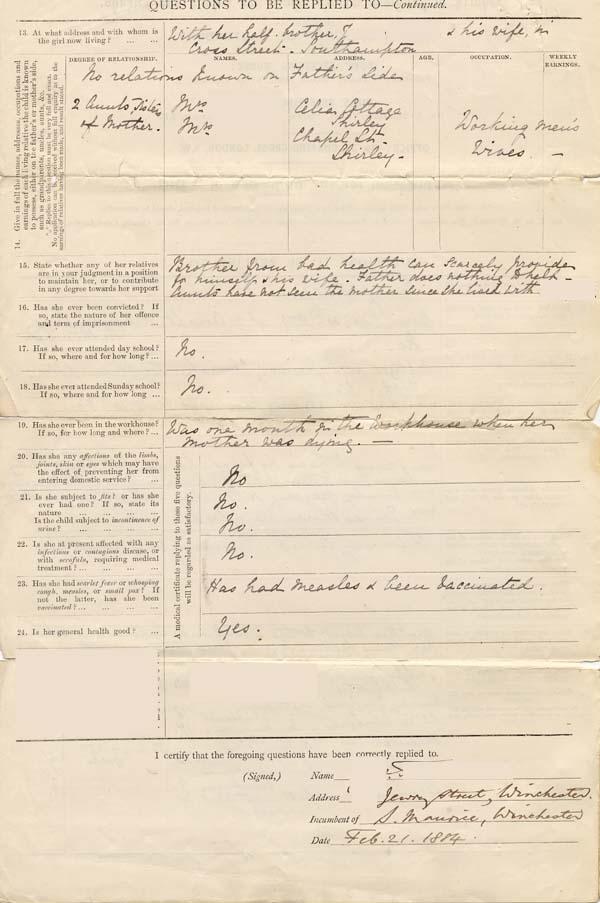 QUESTIONS TO BE REPLIED TO—Continued.
13. At what address and with whom is
the girl now living? ... ...
With her half-brother, J & his wife, in
Cross Street - Southampton
14. Give in full the names, addresses, occupations and
earnings of each living relative the child is known
to possess, either on the father's or mother's side,
such as grandparents, uncles, aunts, &c.
DEGREE OF RELATIONSHIP. NAMES. ADDRESS. AGE. OCCUPATION. WEEKLY
EARNINGS.
No relations known on Father's side
2 Aunts, Sisters Mrs Celia Cottage
Shirley
of Mother. Mrs Chapel St. Working men's
Shirley - Wives -
15. State whether any of her relatives
are in your judgment in a position
to maintain her, or to contribute
in any degree towards her support
Brother from bad health can scarcely provide
for himself & his wife. Father does nothing to help -
Aunts have not seen the mother since she lived with
16. Has she ever been convicted? If
so, state the nature of her offence
and term of imprisonment ...
17. Has she ever attended day school?
If so, where and for how long? ...
No.
18. Has she ever attended Sunday school?
If so, where and for how long ...
No.
19. Has she ever been in the workhouse?
If so, for how long and where? ...
Was one month in the Workhouse when her
mother was dying. —
A medical certificate replying to these five questions
will be regarded as satisfactory.
20. Has she any affections of the limbs,
joints, skin or eyes which may have
the effect of preventing her from
entering domestic service? ...
No
21. Is she subject to fits? or has she
ever had one? If so, state its
nature ... ... ... ...
No.
Is the child subject to incontinence of
urine? ... ... ... ...
No.
22. Is she at present affected with any
infectious or contagious disease, or
with scrofula, requiring medical
treatment? ... ... ... ...
No.
23. Has she had scarlet fever or whooping
cough, measles, or small pox? If
not the latter, has she been
vaccinated? ... ... ... ...
Has had measles & been vaccinated.
24. Is her general health good? ...
Yes.
I certify that the foregoing questions have been correctly replied to.
(Signed,) Name
Address Jewry Street, Winchester.
Incumbent of S. Maurice, Winchester
Date Feb. 21. 1884.